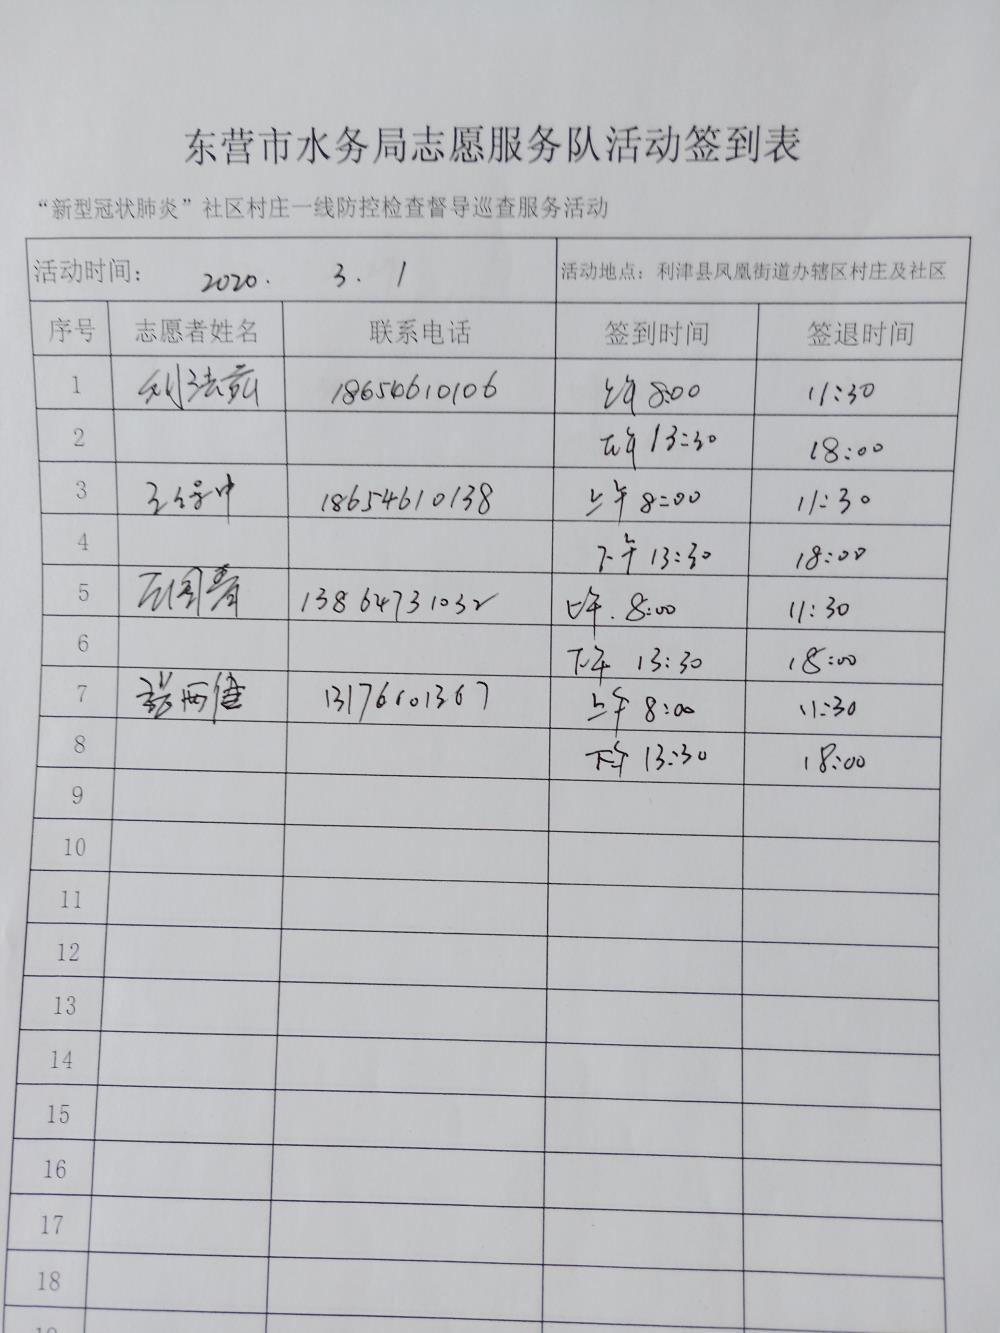 东营市水务局志愿服务队活动签到表
“新型冠状肺炎”社区村庄一线防控检查督导巡查服务活动
活动时间： 2020. 3. 1 活动地点：利津县凤凰街道办辖区村庄及社区
序号 志愿者姓名 联系电话 签到时间 签退时间
1 18654610106 上午 8:00 11:30
2 下午 13:30 18:00
3 18654610138 上午 8:00 11:30
4 下午 13:30 18:00
5 13864731032 上午. 8:00 11:30
6 下午 13:30 18:00
7 张西健 13176601367 上午 8:00 11:30
8 下午 13:30 18:00
9
10
11
12
13
14
15
16
17
18